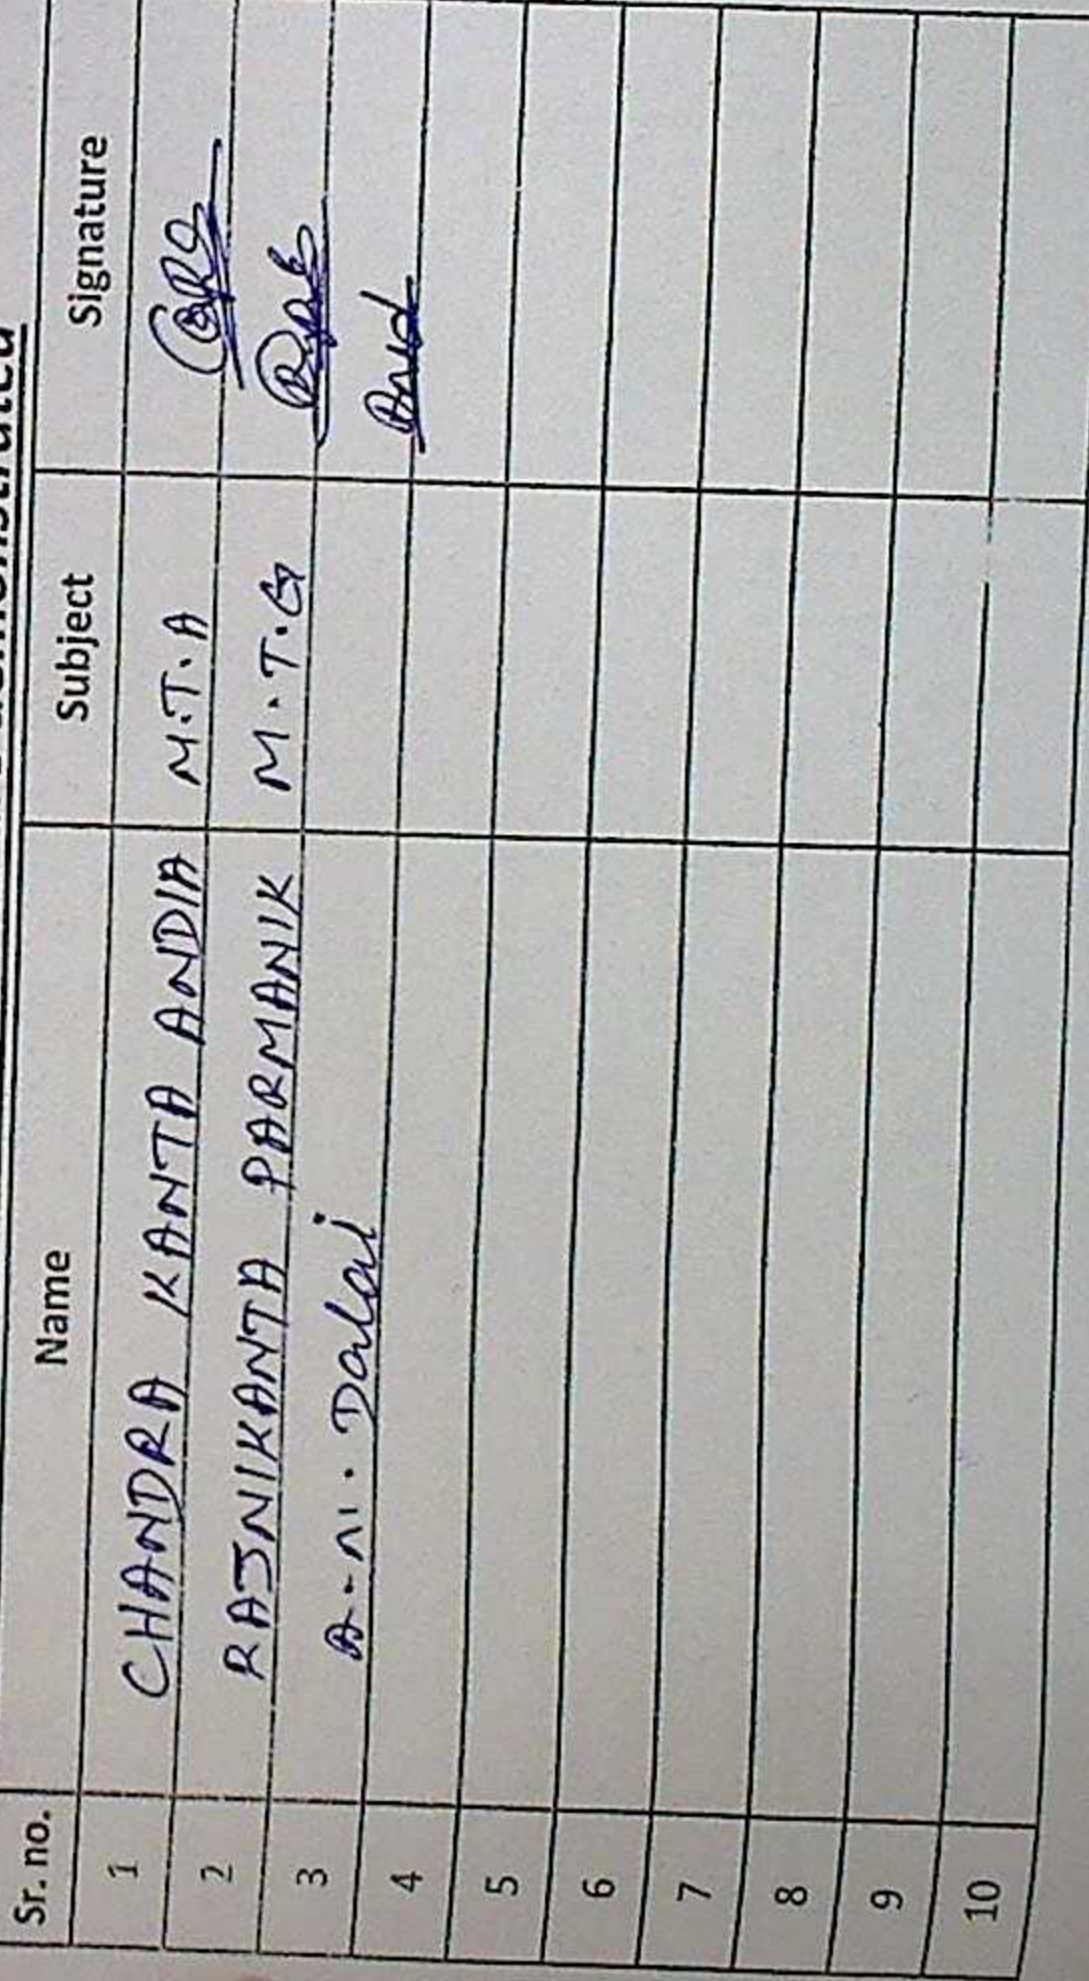 Sr. no. Name Subject Signature
1 CHANDRA KANTA ANDIA M.T.A
2 RAJNIKANTA PARMANIK M.T.G
3 Dalai
4
5
6
7
8
9
10